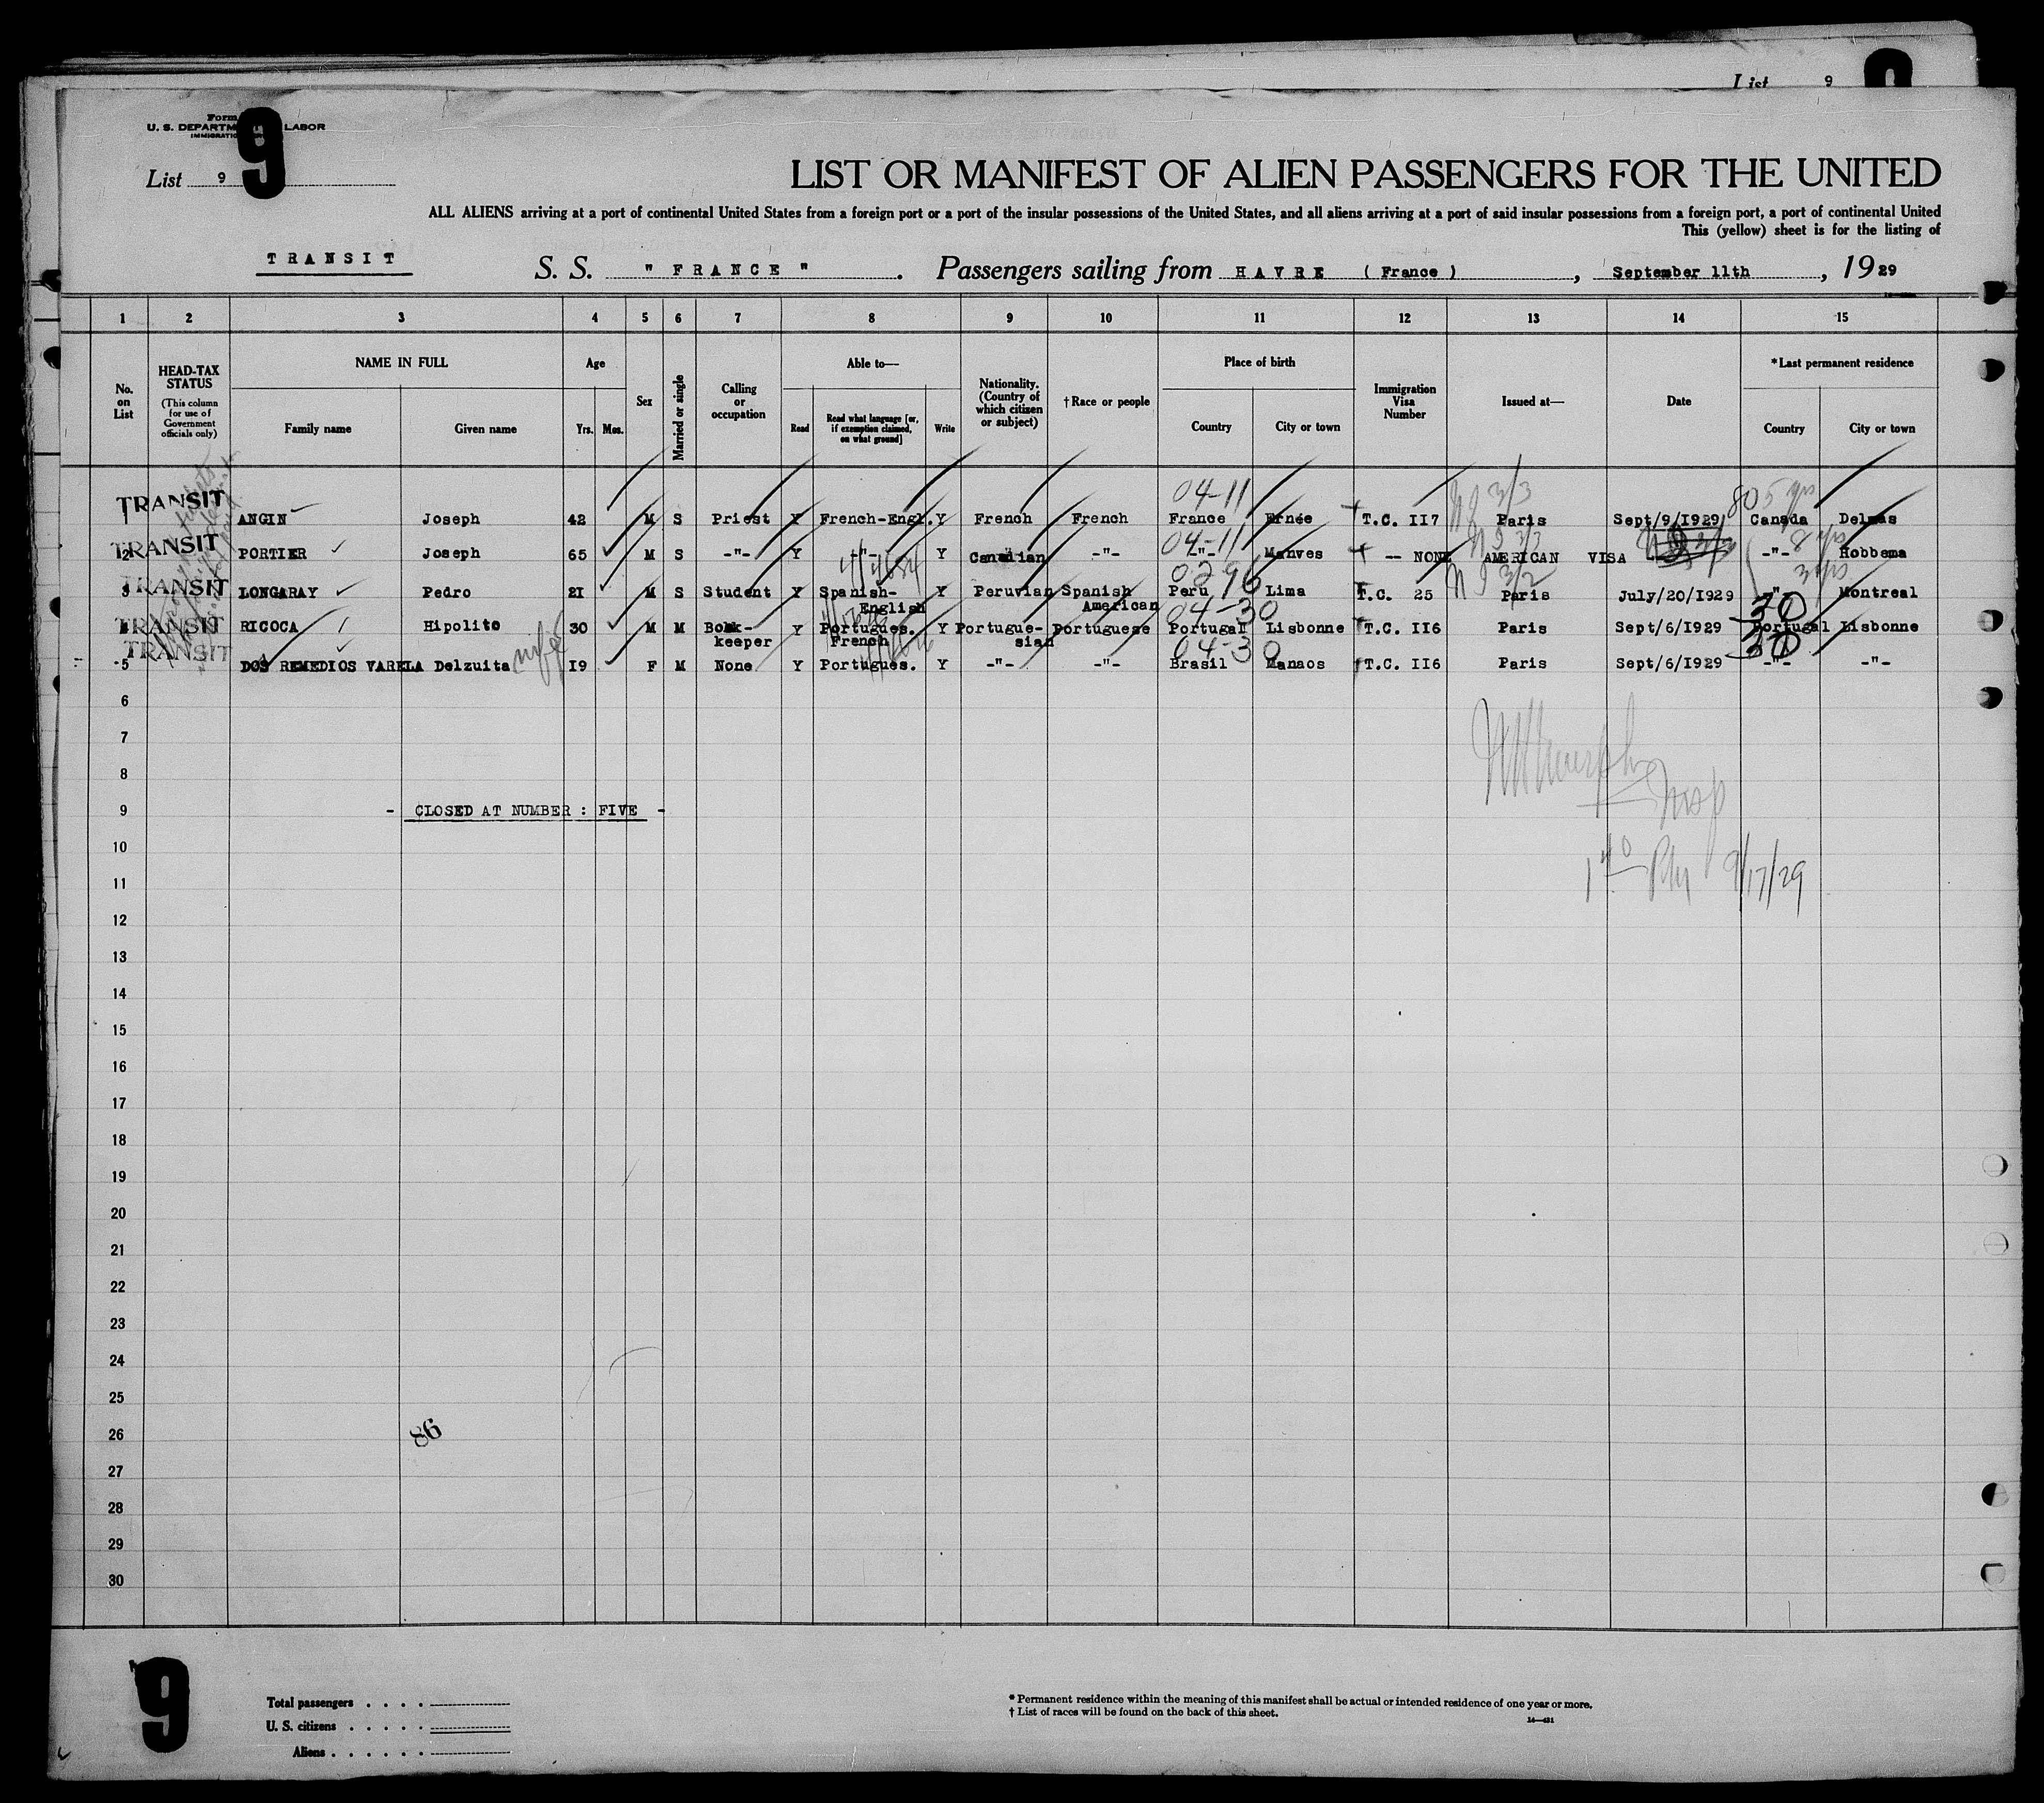 List 9
Form
U. S. DEPARTM LABOR
IMMIGRATIO
9
List 9
LIST OR MANIFEST OF ALIEN PASSENGERS FOR THE UNITED
ALL ALIENS arriving at a port of continental United States from a foreign port or a port of the insular possessions of the United States, and all aliens arriving at a port of said insular possessions from a foreign port, a port of continental United
This (yellow) sheet is for the listing of
TRANSIT S. S. " FRANCE " . Passengers sailing from HAVRE ( France ) , September 11th , 1929
1 2 3 4 5 6 7 8 9 10 11 12 13 14 15
No. on List
HEAD-TAX STATUS (This column for use of Government officials only)
NAME IN FULL
Family name Given name
Age
Yrs. Mos.
Sex
Married or single
Calling or occupation
Able to—
Read
Read what language [or, if exemption claimed, on what ground]
Write
Nationality. (Country of which citizen or subject)
†Race or people
Place of birth
Country City or town
Immigration Visa Number
Issued at—
Date
*Last permanent residence
Country City or town
04-11
TRANSIT
1 ANGIN Joseph 42 M S Priest Y French-Engl. Y French French France Ernée T.C. II7 Paris Sept/9/I929 Canada Delmas
04-11
TRANSIT
2 PORTIER Joseph 65 M S -"- Y -"- Y Canadian -"- -"- Manves — NONE AMERICAN VISA -"- Hobbema
0296
TRANSIT
3 LONGARAY Pedro 2I M S Student Y Spanish-English Y Peruvian Spanish American Peru Lima T.C. 25 Paris July/20/I929 -"- Montreal
04-30 30
TRANSIT
4 RICOCA Hipolito 30 M M Book-keeper Y Portugues. French Y Portugue-sian Portuguese Portugal Lisbonne T.C. II6 Paris Sept/6/I929 Portugal Lisbonne
04-30 30
TRANSIT
5 DOS REMEDIOS VARELA Delzuita I9 F M None Y Portugues. Y -"- -"- Brasil Manaos T.C. II6 Paris Sept/6/I929 -"- -"-
6
7
8
9 - CLOSED AT NUMBER : FIVE -
10
11 9/17/29
12
13
14
15
16
17
18
19
20
21
22
23
24
25
26 86
27
28
29
30
9
Total passengers
U. S. citizens
Aliens
* Permanent residence within the meaning of this manifest shall be actual or intended residence of one year or more.
† List of races will be found on the back of this sheet.
14—431